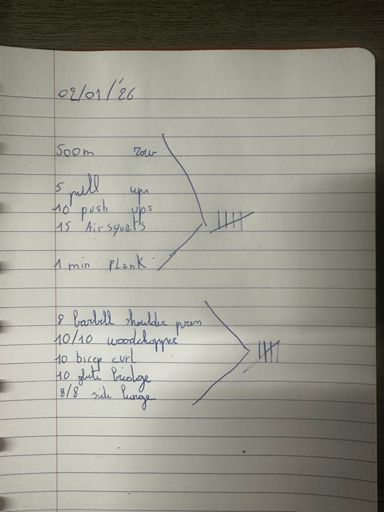 02/01/'26
500m row
5 pull ups
10 push ups
15 Air squats
1 min Plank
8 barbell shoulder press
10/10 woodchopper
10 bicep curl
10 glute bridge
8/8 side lunge